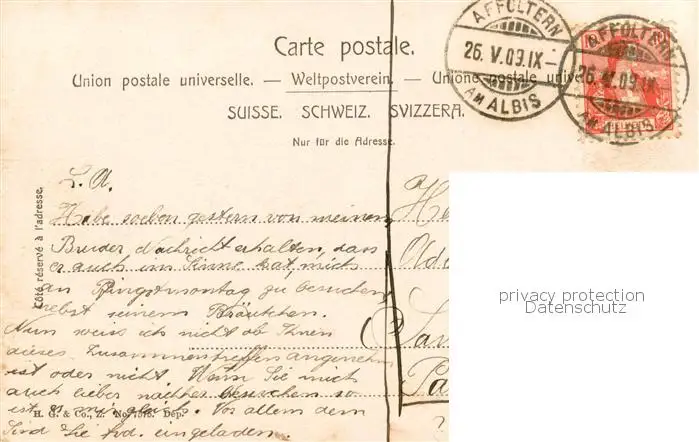 Carte postale.
Union postale universelle. — Weltpostverein. — Unione postale unive
SUISSE. SCHWEIZ. SVIZZERA.
Nur für die Adresse.
AFFOLTERN
26. V. 09. IX –
AM ALBIS
AFFOLTERN
26. V. 09. IX
AM ALBIS
HELVETIA
Côté réservé à l'adresse.
L. A.
Habe soeben gestern von meinem
Bruder Nachricht erhalten, dass
er auch im Sinne hat, mich
an Pfingstmontag zu besuchen,
nebst seinem Bräutchen.
Nun weiss ich nicht ob Ihnen
dieses Zusammentreffen angenehm
ist oder nicht. Wenn Sie mich
auch lieber nachher besuchen so
ist
Vor allem dem
Sind Sie frd. eingeladen.
H. G. & Co., Z. No. Dép.
privacy protection
Datenschutz